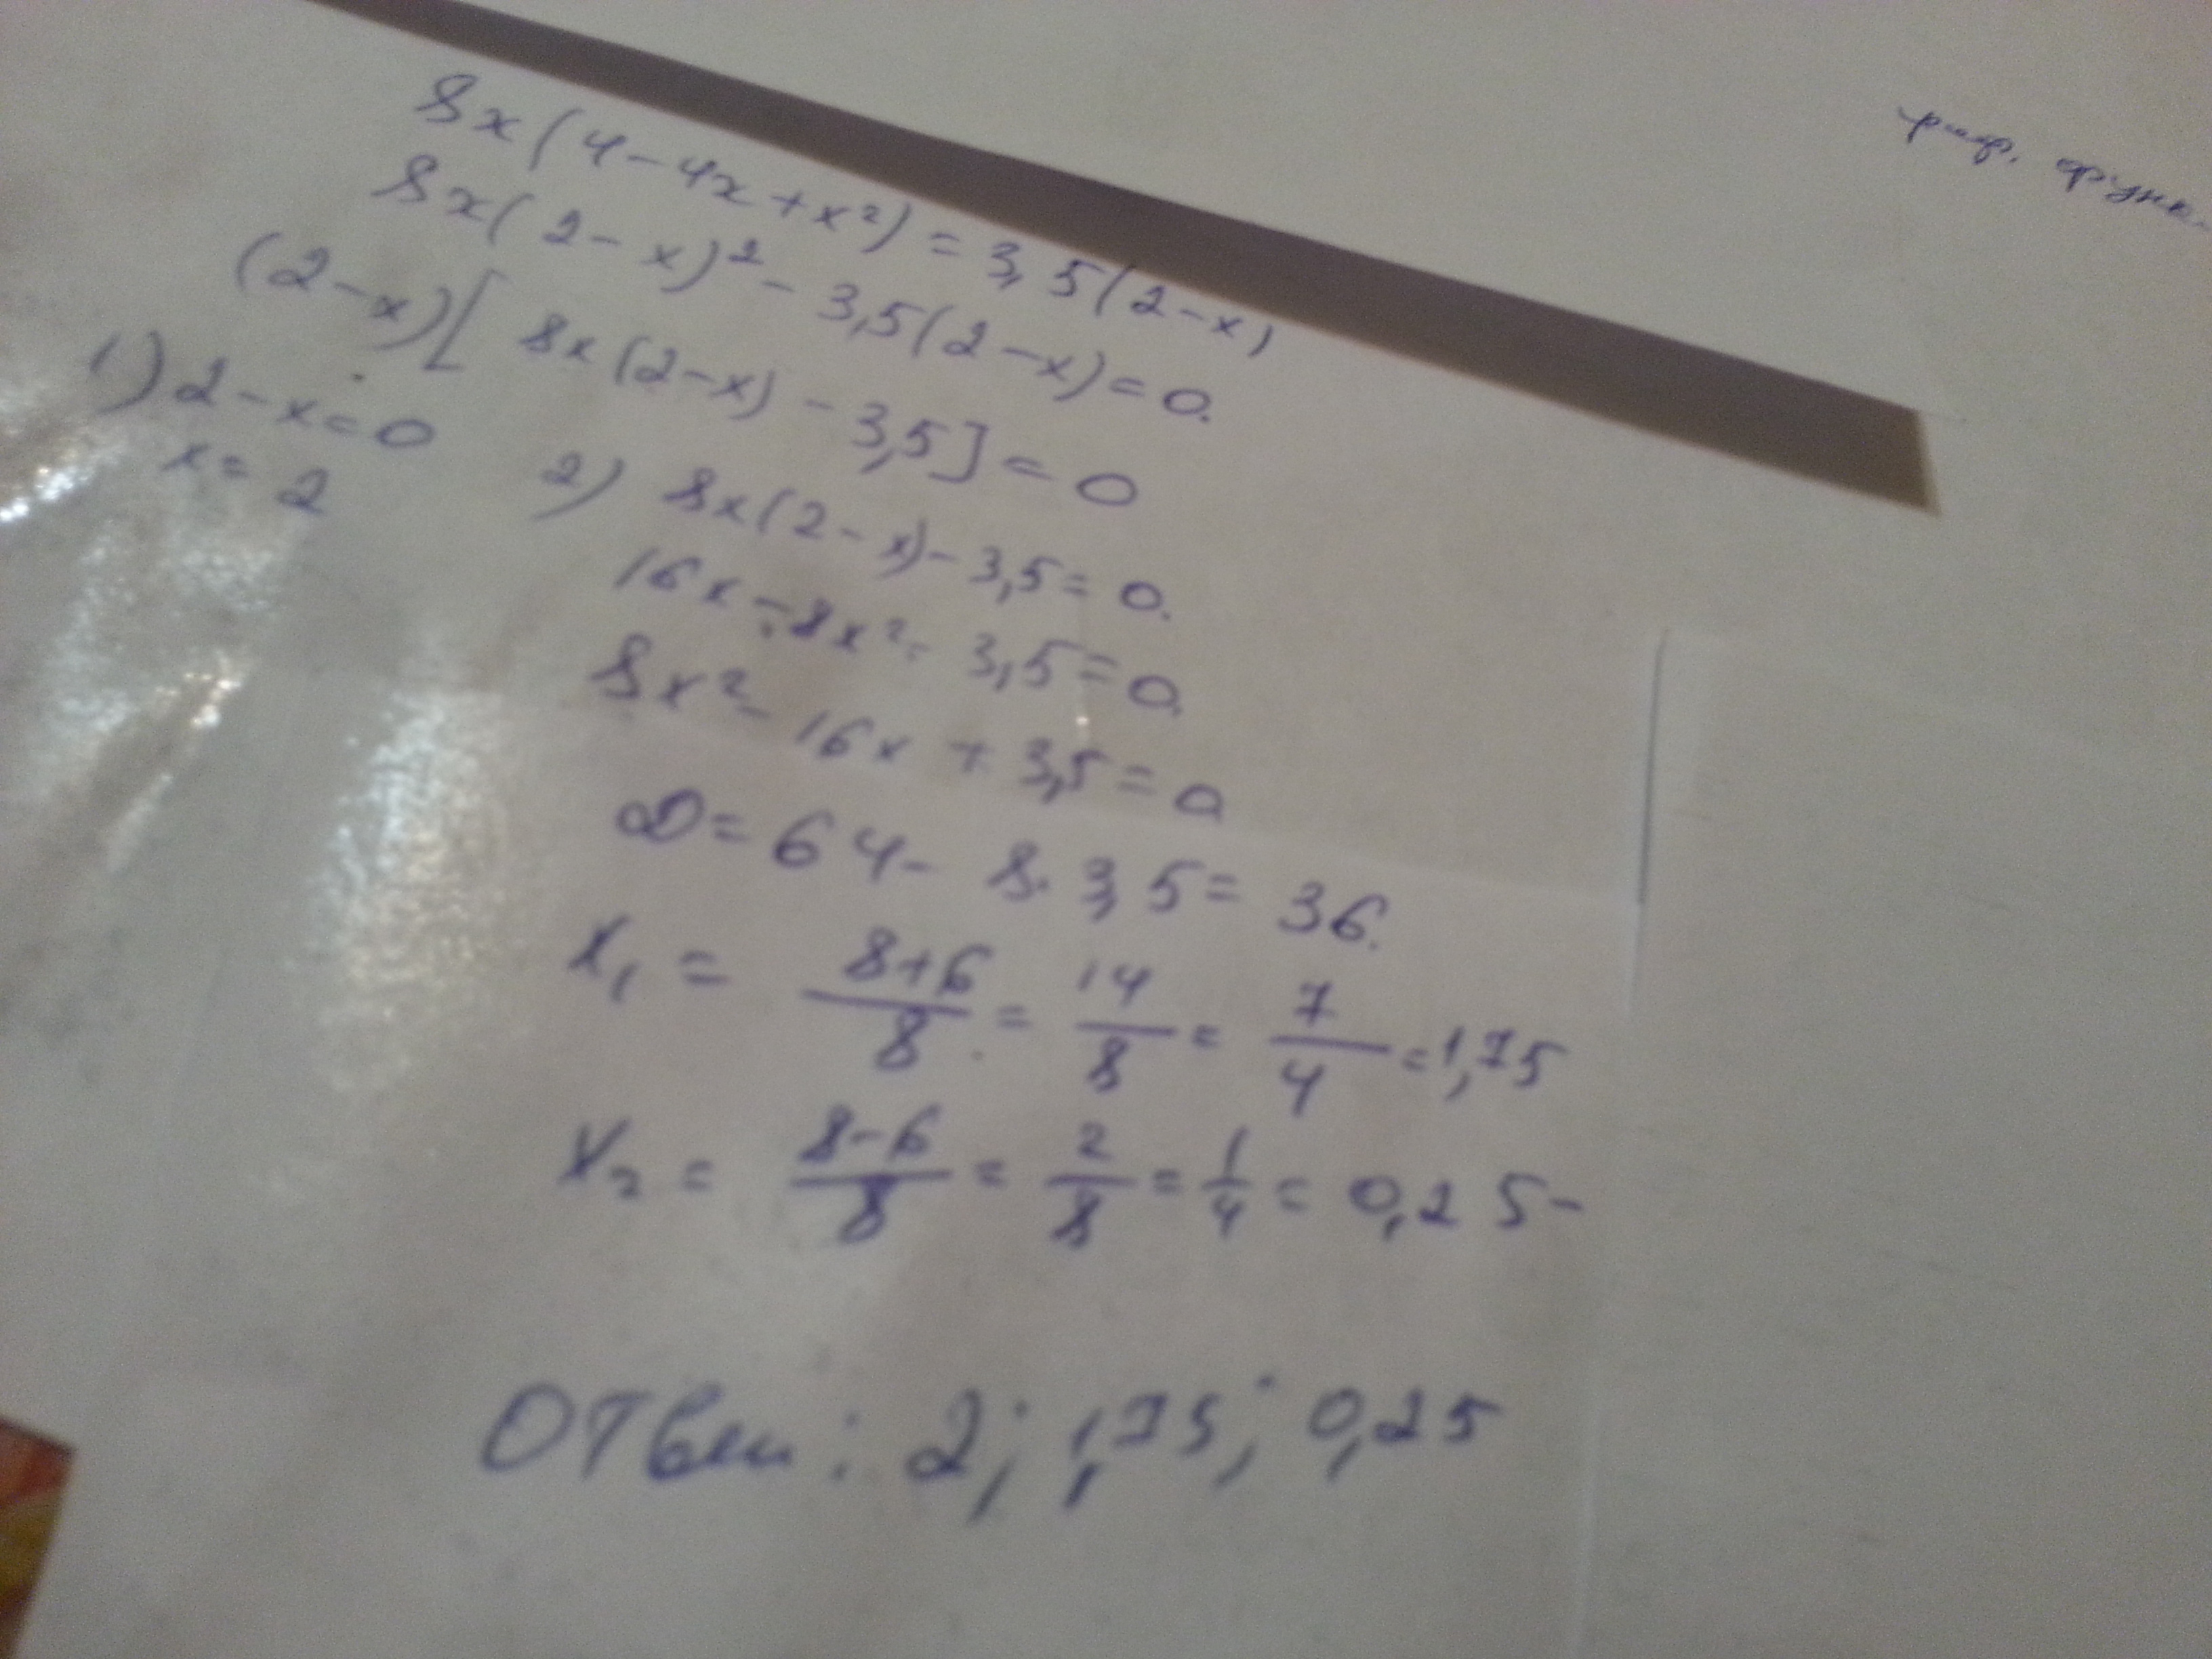 8x(4-4x+x²)=3,5(2-x)
8x(2-x)²-3,5(2-x)=0.
(2-x)[8x(2-x)-3,5]=0
1) 2-x=0
x=2
2) 8x(2-x)-3,5=0.
16x-8x²-3,5=0.
8x²-16x+3,5=0
D=64-8·3,5=36.
x₁=(8+6)/8=14/8=7/4=1,75
x₂=(8-6)/8=2/8=1/4=0,25-
Ответ: 2; 1,75; 0,25